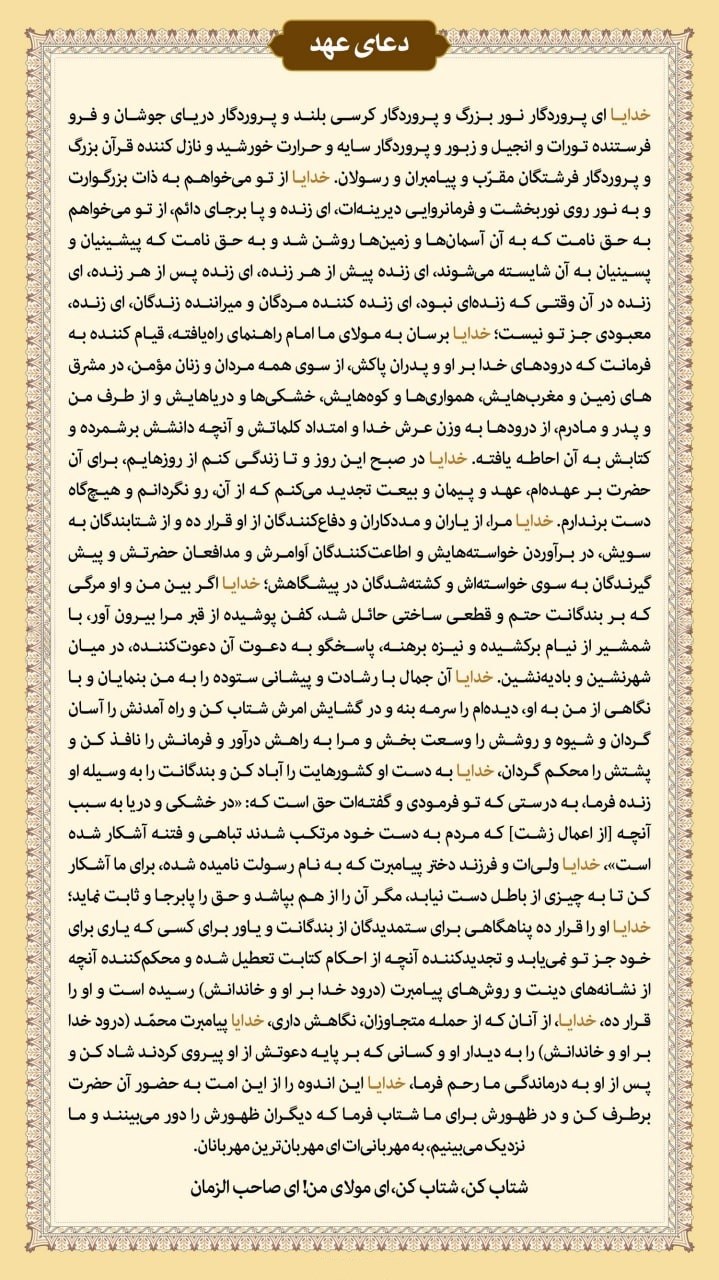 دعای عهد
خدایـا ای پـروردگار نـور بـزرگ و پـروردگار کرسـی بلنـد و پـروردگار دریـای جوشـان و فـرو
فرسـتنده تـورات و انجیـل و زبـور و پـروردگار سـایه و حـرارت خورشـید و نازل کننده قـرآن بزرگ
و پـروردگار فرشـتگان مقـرّب و پیامبران و رسـولان. خدایـا از تو می‌خواهم به ذات بزرگوارت
و بـه نـور روی نوربخشـت و فرمانروایـی دیرینـه‌ات، ای زنـده و پـا برجای دائم، از تـو می‌خواهم
بـه حـق نامـت کـه بـه آن آسمان‌هـا و زمین‌هـا روشـن شـد و بـه حـق نامـت کـه پیشـینیان و
پسـینیان بـه آن شایسـته می‌شـوند، ای زنـده پیـش از هـر زنـده، ای زنـده پـس از هـر زنـده، ای
زنـده در آن وقتـی کـه زنـده‌ای نبـود، ای زنـده کننـده مـردگان و میراننـده زنـدگان، ای زنـده،
معبـودی جـز تـو نیسـت؛ خدایـا برسـان بـه مـولای مـا امـام راهنمای راه‌یافتـه، قیـام کننـده بـه
فرمانـت کـه درودهـای خـدا بـر او و پـدران پاکش، از سـوی همـه مـردان و زنان مؤمـن، در مشرق
هـای زمیـن و مغرب‌هایـش، همواری‌هـا و کوه‌هایـش، خشـکی‌ها و دریاهایـش و از طـرف مـن
و پـدر و مـادرم، از درودهـا بـه وزن عـرش خـدا و امتـداد کلماتـش و آنچـه دانشـش برشمـرده و
کتابـش بـه آن احاطـه یافتـه. خدایـا در صبـح ایـن روز و تـا زندگـی کنـم از روزهایـم، بـرای آن
حضرت بـر عهـده‌ام، عهـد و پیـمان و بیعـت تجدیـد می‌کنـم کـه از آن، رو نگردانـم و هیـچ‌گاه
دست برندارم. خدایـا مـرا، از یـاران و مـددکاران و دفاع‌کننـدگان از او قـرار ده و از شـتابندگان به
سـویش، در بـرآوردن خواسـته‌هایش و اطاعت‌کننـدگان اَوامـرش و مدافعـان حضرتـش و پیـش
گیرنـدگان بـه سـوی خواسـته‌اش و کشته‌شـدگان در پیشـگاهش؛ خدایـا اگـر بیـن مـن و او مرگـی
کـه بـر بندگانـت حتـم و قطعـی سـاختی حائـل شـد، کفـن پوشـیده از قبـر مـرا بیـرون آور، بـا
شمشـیر از نیـام برکشـیده و نیـزه برهنـه، پاسـخگو بـه دعـوت آن دعوت‌کننـده، در میـان
شهرنشـین و بادیه‌نشـین. خدایـا آن جمال بـا رشـادت و پیشـانی سـتوده را به من بنمایـان و بـا
نگاهـی از مـن بـه او، دیـده‌ام را سرمـه بنه و در گشـایش امرش شـتاب کـن و راه آمدنش را آسـان
گـردان و شـیوه و روشـش را وسـعت بخـش و مـرا بـه راهـش درآور و فرمانـش را نافـذ کـن و
پشـتش را محکـم گـردان، خدایـا بـه دست او کشورهایت را آبـاد کـن و بندگانـت را به وسـیله او
زنـده فرمـا، بـه درسـتی کـه تـو فرمـودی و گفتـه‌ات حق اسـت کـه: «در خشـکی و دریـا به سـبب
آنچـه [از اعمال زشـت] کـه مـردم بـه دسـت خـود مرتکـب شـدند تباهـی و فتنـه آشـکار شـده
اسـت»، خدایـا ولـی‌ات و فرزنـد دختـر پیامبرت کـه به نـام رسـولت نامیده شـده، برای ما آشـکار
کـن تـا بـه چیـزی از باطـل دسـت نیابـد، مگـر آن را از هـم بپاشـد و حـق را پابرجـا و ثابـت نماید؛
خدایـا او را قـرار ده پناهگاهـی بـرای سـتمدیدگان از بندگانـت و یـاور بـرای کسـی کـه یاری برای
خـود جـز تـو نمی‌یابـد و تجدیدکننـده آنچـه از احـکام کتابـت تعطیل شـده و محکم‌کننـده آنچـه
از نشـانه‌های دینـت و روش‌هـای پیامبرت (درود خـدا بـر او و خاندانـش) رسـیده اسـت و او را
قـرار ده، خدایـا، از آنـان کـه از حملـه متجـاوزان، نگاهـش داری، خدایـا پیامبرت محمّـد (درود خدا
بـر او و خاندانـش) را بـه دیـدار او و کسـانی کـه بـر پایـه دعوتـش از او پیـروی کردنـد شـاد کـن و
پـس از او بـه درماندگـی مـا رحـم فرمـا، خدایـا ایـن انـدوه را از ایـن امـت بـه حضـور آن حضرت
برطـرف کـن و در ظهـورش بـرای مـا شـتاب فرمـا کـه دیگـران ظهـورش را دور می‌بیننـد و مـا
نزدیـک می‌بینیـم، به مهربانـی‌ات ای مهربان‌ترین مهربانان.
شتاب کن، شتاب کن، ای مولای من! ای صاحب الزمان